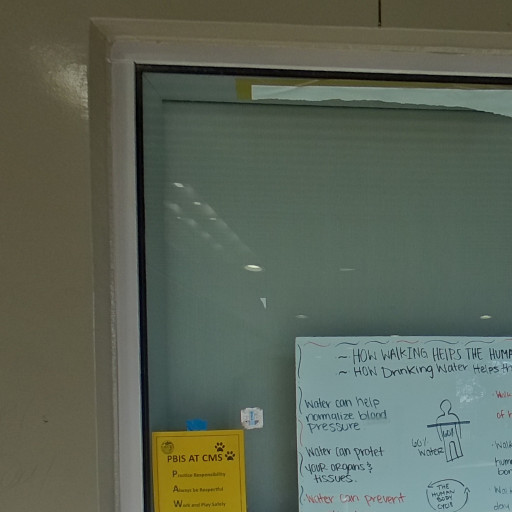 ~ HOW WALKING HELPS THE HUMA
~ HOW Drinking Water Helps th
Water can help
normalize blood
pressure
60%
water
Water can protet
your organs &
tissues.
Water can prevent
THE
HUMAN
BODY
of h
hum
PBIS AT CMS
Practice Responsibility
Always be Respectful
Work and Play Safely